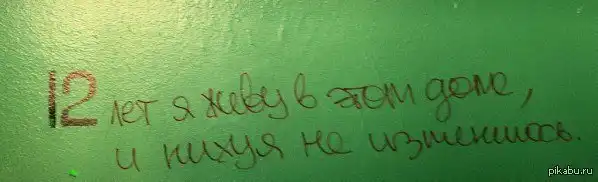 12 лет я живу в этом доме,
и нихуя не изменилось.
pikabu.ru